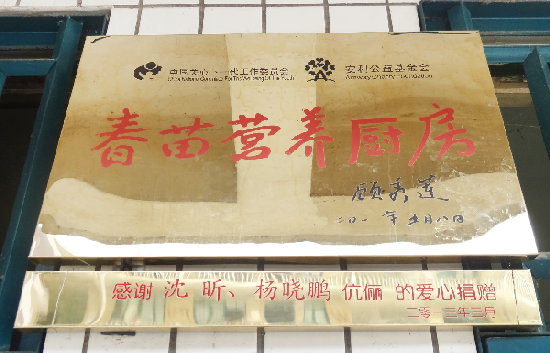 中国关心下一代工作委员会
安利公益基金会
China National Committee For The Wellbeing Of The Youth
Amway Charity Foundation
春苗营养厨房
顾秀莲
二〇一 年 五月八日
感谢 沈 昕、杨晓鹏 伉俪 的爱心捐赠
二零一三年三月